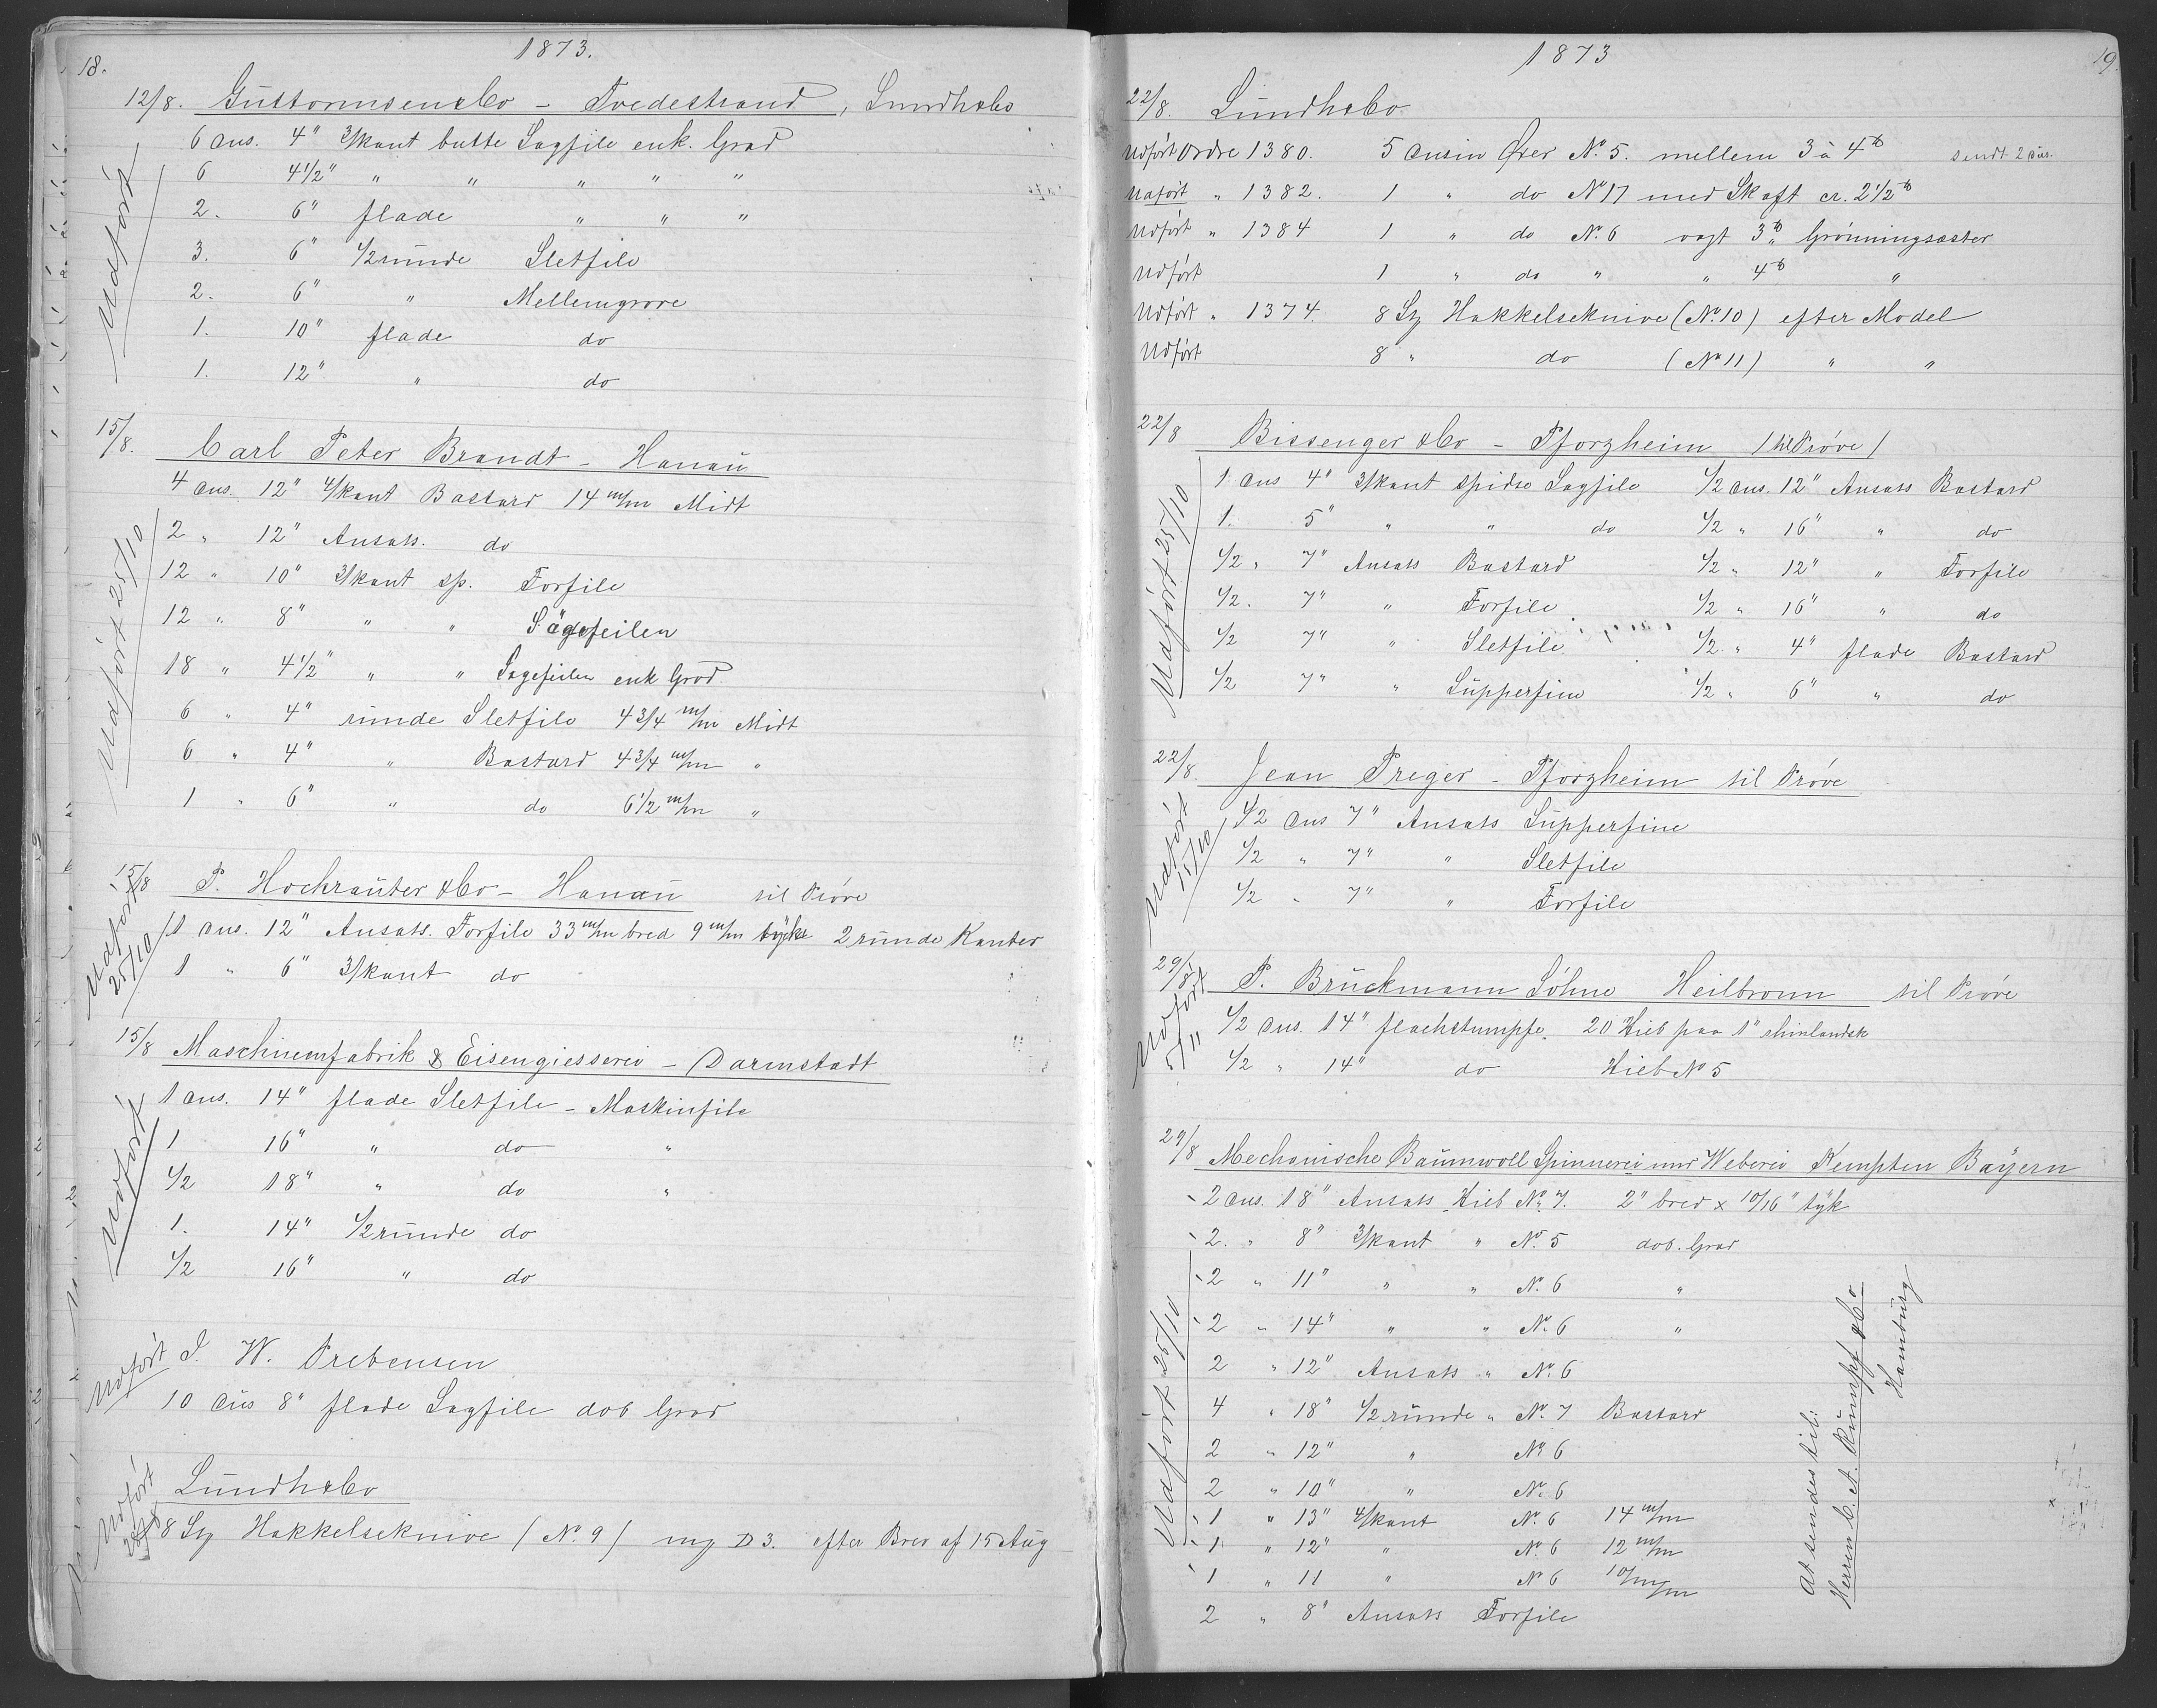 18.
1873.
12/8. Guttormsen & Co - Tvedestrand, Lundh & Co
Udført
6 Dus. 4" 3/kant butte Sagfile enk. Grad
6 4 1/2" " " " " "
2. 6" flade " " "
3. 6" 1/2 runde Sletfile
2. 6" " Mellemgrove
1. 10" flade do
1. 12" " do
15/8. Carl Peter Brandt - Hanau
Udført 25/10
4 Dus. 12" 4/kant Bastard 14 m/m Midt
2 " 12" Ansats. do
12 " 10" 3/kant sp. Forfile
12 " 8" " " Sägefeilen
18 " 4 1/2" " " Sagefeilen enk Grad
6 " 4" runde Sletfile 4 3/4 m/m Midt
6 " 4" " Bastard 4 3/4 m/m "
1 " 6" " do 6 1/2 m/m "
15/8 P. Hochrauter & Co - Hanau til Prøve
Udført 25/10
1 Dus. 12" Ansats. Forfile 33 m/m bred 9 m/m tykk 2 runde Kanter
1 " 6" 3/kant do
15/8 Maschinenfabrik & Eisengiesserei - Darmstadt
Udført
1 Dus. 14" flade Sletfile - Maskinfile
1 16" " do "
1/2 18" " do "
1. 14" 1/2 runde do
1/2 16" " do
Udført J. W. Prebensen
10 Dus 8" flade Sagfile dob Grad
Udført
Lundh & Co
8 Sz Hakkelseknive (No. 9) mg D 3. efter Brev af 15 Aug
1873
19.
22/8. Lundh & Co.
Udført Ordre 1380. 5 Dusin Øxer No. 5. mellem 3 à 4 lb sendt 2 Dus.
Udført " 1382. 1 " do No 17 med Skaft cr. 2 1/2 lb
Udført " 1384 1 " do No. 6 vagt 3 lb Grönningsaster
Udført 1 " do " " 4 lb "
Udført " 1374. 8 Sz Hakkelseknive (No. 10) efter Model
Udført 8 " do (No 11) " "
22/8 Bissenger & Co - Pforzheim / til Prøve /
Udført 25/10
1 Dus 4" 3/kant spidse Sagfile 1/2 Dus. 12" Ansats Bastard
1. 5" " " do 1/2 " 16" " do
1/2 " 7" Ansats Bastard 1/2 " 12" " Forfile
1/2. 7" " Forfile 1/2 " 16" " do
1/2 7" " Sletfile 1/2 " 4" flade Bastard
1/2 7" " Supperfine 1/2 " 6" " do
22/8. Jean Preger - Pforzheim til Prøve
Udført 15/10
1/2 Dus 7" Ansats Supperfine
1/2 " 7" " Sletfile
1/2 " 7" " Forfile
29/8 P. Bruckmann Söhne Heilbronn til Prøve
Udført 5/11
1/2 Dus. 14" flachstumpfe. 20 Hieb paa 1" rhinlandsk
1/2 " 14" do Hieb No 5
29/8 Mechanische Baumwoll Spinnerei und Weberei Kempten Bayern
Udført 25/10
2 Dus. 18" Ansats Hieb No. 7. 2" bred x 10/16" tyk
2. " 8" 3/kant " No. 5 dob. Grad
2 " 11" " " No. 6 "
2 " 14" " " No. 6 "
2 " 12" Ansats " No. 6
4 " 18" 1/2 runde " No. 7 Bastard
2 " 12" " No 6
2 " 10" " No. 6
1 " 13" 4/kant No. 6 14 m/m
1. " 12" " No. 6 12 m/m
1 " 11 " No 6 10 m/m
2 " 8" Ansats Forfile
At sendes til:
Herren C. A. Rumpf & Co
Hamburg